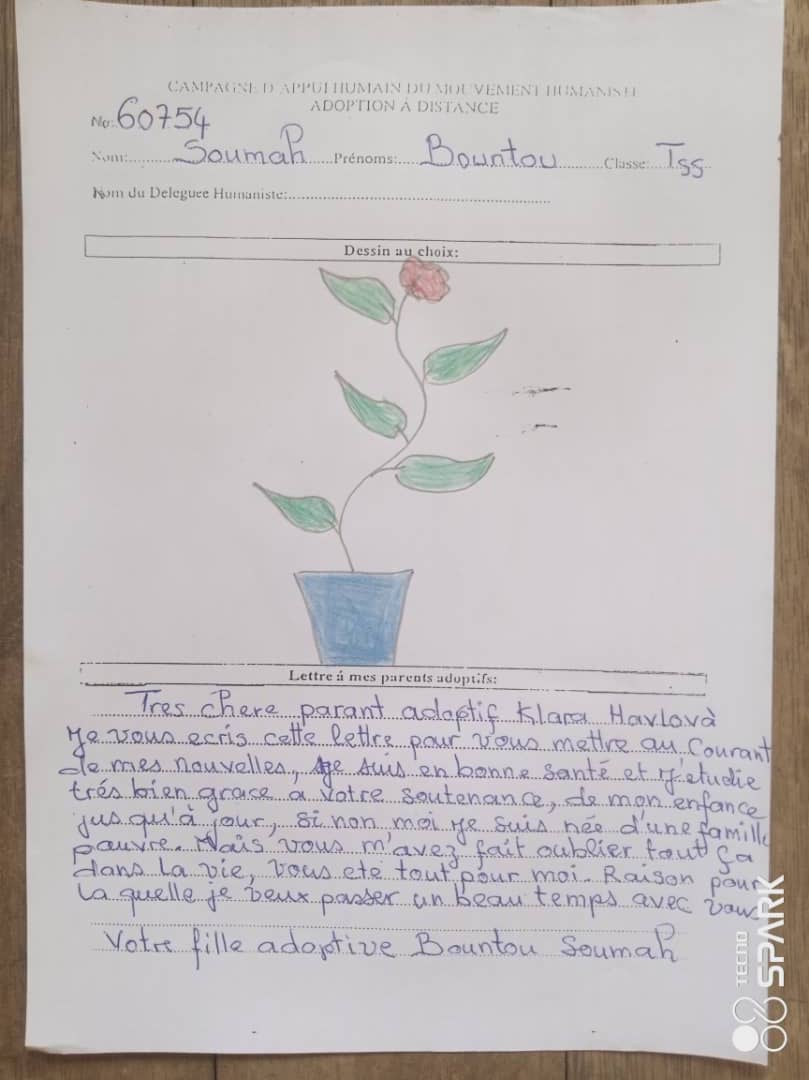 CAMPAGNE D'APPUI HUMAIN DU MOUVEMENT HUMANISTE
ADOPTION À DISTANCE
No: 60754
Nom:.......... Soumah ..... Prénoms:..... Bountou ..........Classe:... Tss
Nom du Deleguee Humaniste:..........................................................
Dessin au choix:
Lettre á mes parents adoptifs:
Tres chere parant adoptif Klara Havlovà
Je vous ecris cette lettre pour vous mettre au Courant
de mes nouvelles, je suis en bonne santé et J'etudie
trés bien grace a votre soutenance, de mon enfance
jus qu'à jour, si non moi je suis née d'une famille
pauvre. Mais vous m'avez fait oublier tout ça
dans la vie, vous ete tout pour moi. Raison pour
la quelle je veux passer un beau temps avec vous
Votre fille adoptive Bountou Soumah
TECNO
SPARK